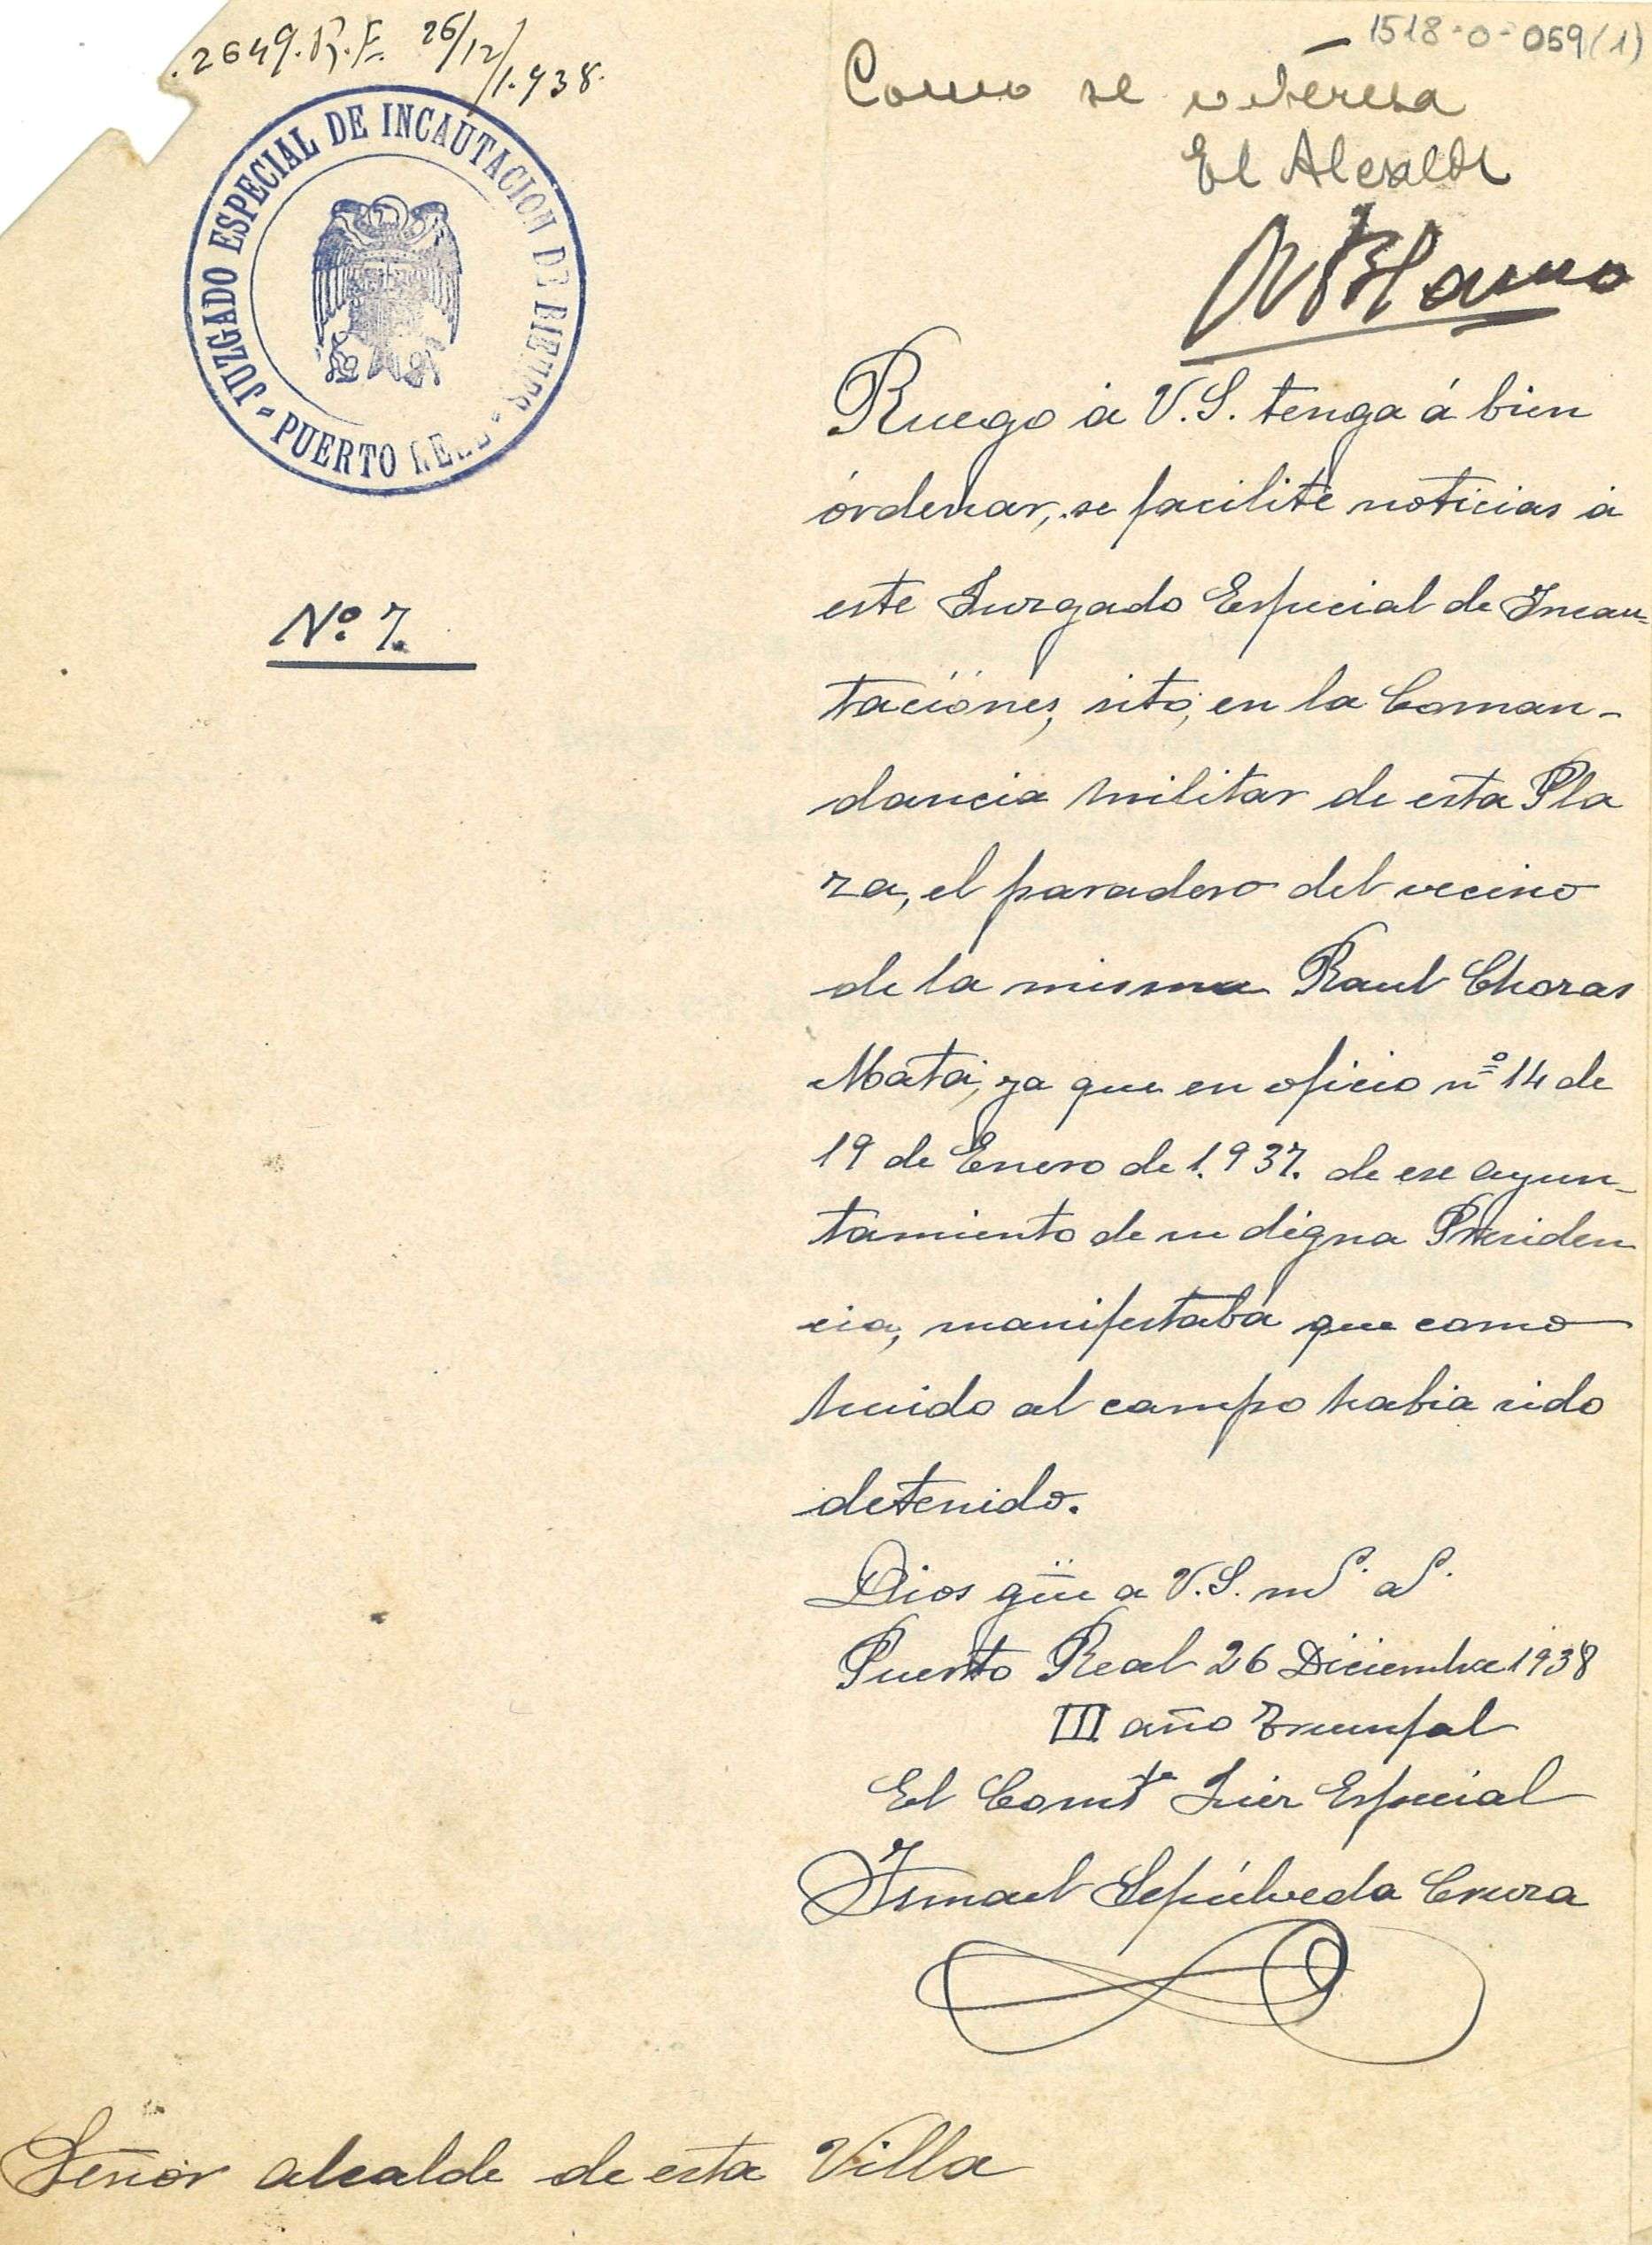 2649. R.E. 26/12/1.938.
1518-0-059(1)
Como se interesa
El Alcalde
JUZGADO ESPECIAL DE INCAUTACION DE BIENES - PUERTO REAL -
Nº. 7.
Ruego á V.S. tenga á bien
órdenar, se facilite noticias á
este Juzgado Especial de Incau-
taciónes, sito, en la Coman-
dancia militar de esta Pla
za, el paradero del vecino
de la misma Raul Choras
Mata, ya que en oficio nº 14 de
19 de Enero de 1.937. de ese ayun-
tamiento de su digna Presiden
cia, manifestaba que como
huido al campo habia sido
detenido.
Dios güe a V.S. mS. aS.
Puerto Real 26 Diciembre 1938
III año Triunfal
El Comte Juez Especial
Ismael Sepúlveda
Señor alcalde de esta Villa